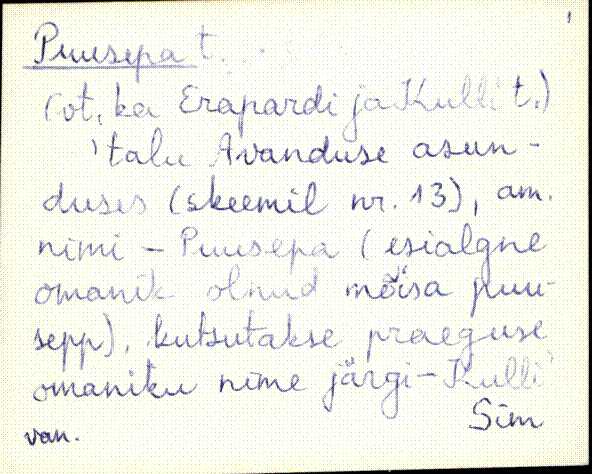 Puusepa t.
(vt. ka Erapardi ja Kulli t.)
'talu Avanduse asun-
duses (skeemil nr. 13), am.
nimi - Puusepa (esialgne
omanik olnud mõisa puu-
sepp), kutsutakse praeguse
omaniku nime järgi - Kulli'
Sim
van.